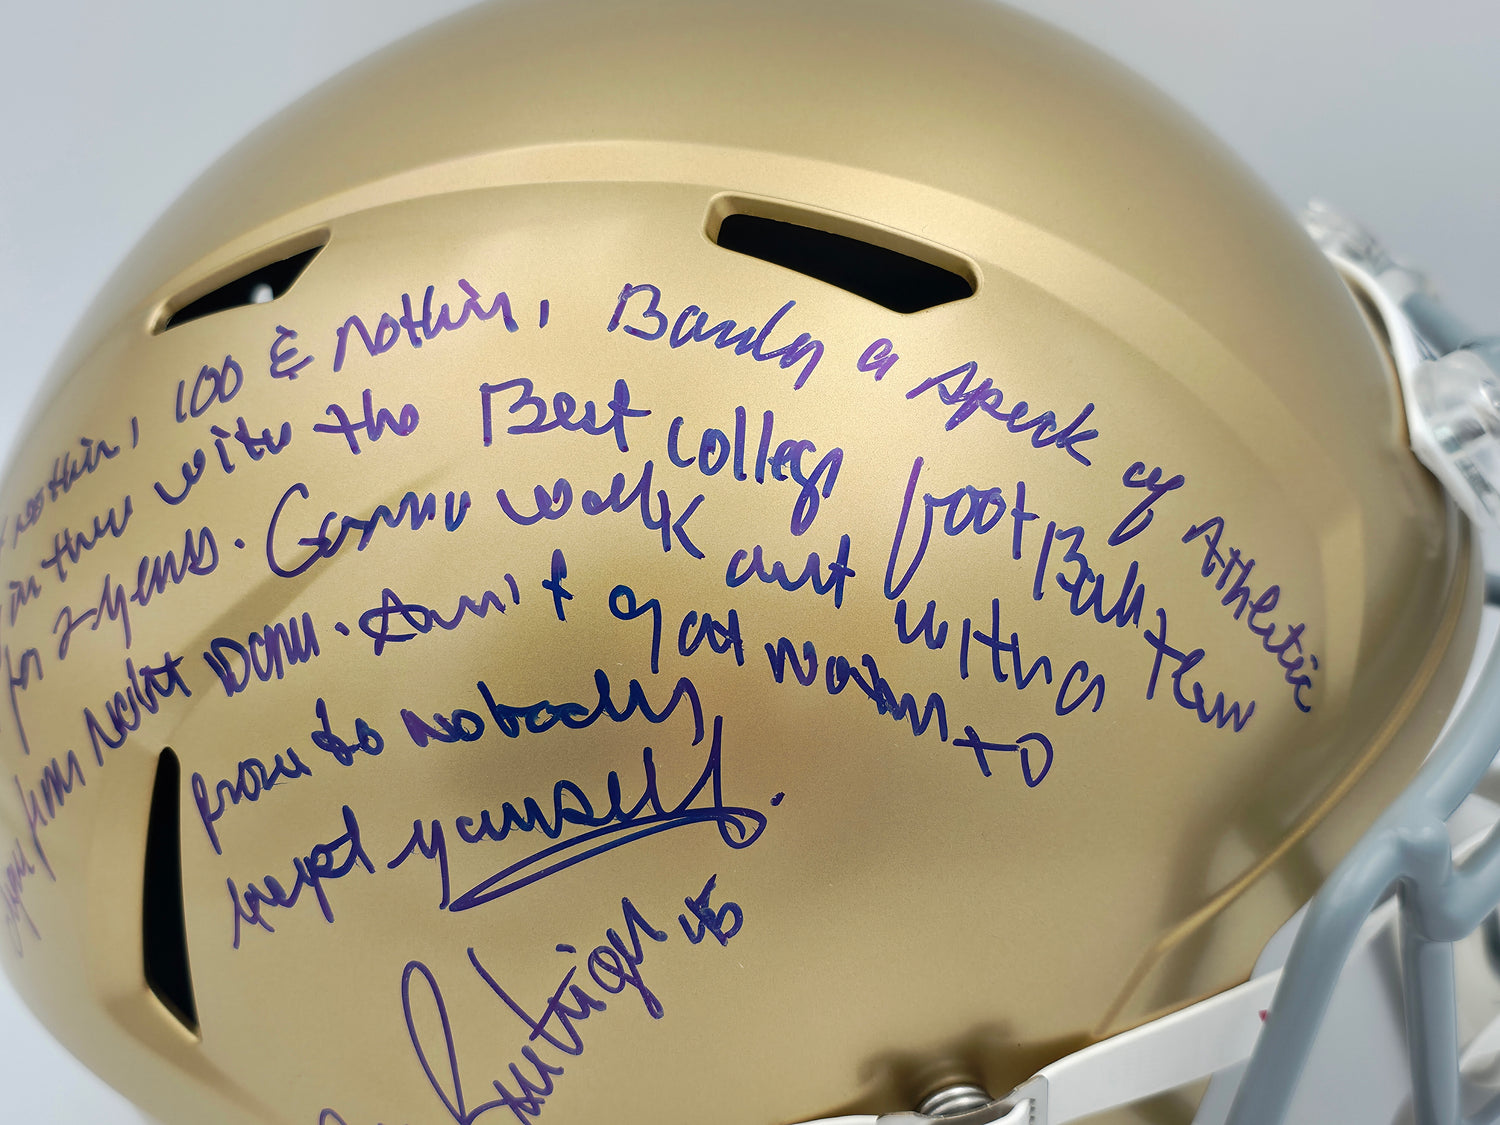 nothin, 100 & nothin, Barely a speck of Athletic
in thru with the Best college football team
for 2 years. Gonna walk out with a
from Notre Dame. Ain't gotta to
prove to nobody
yourself.
45